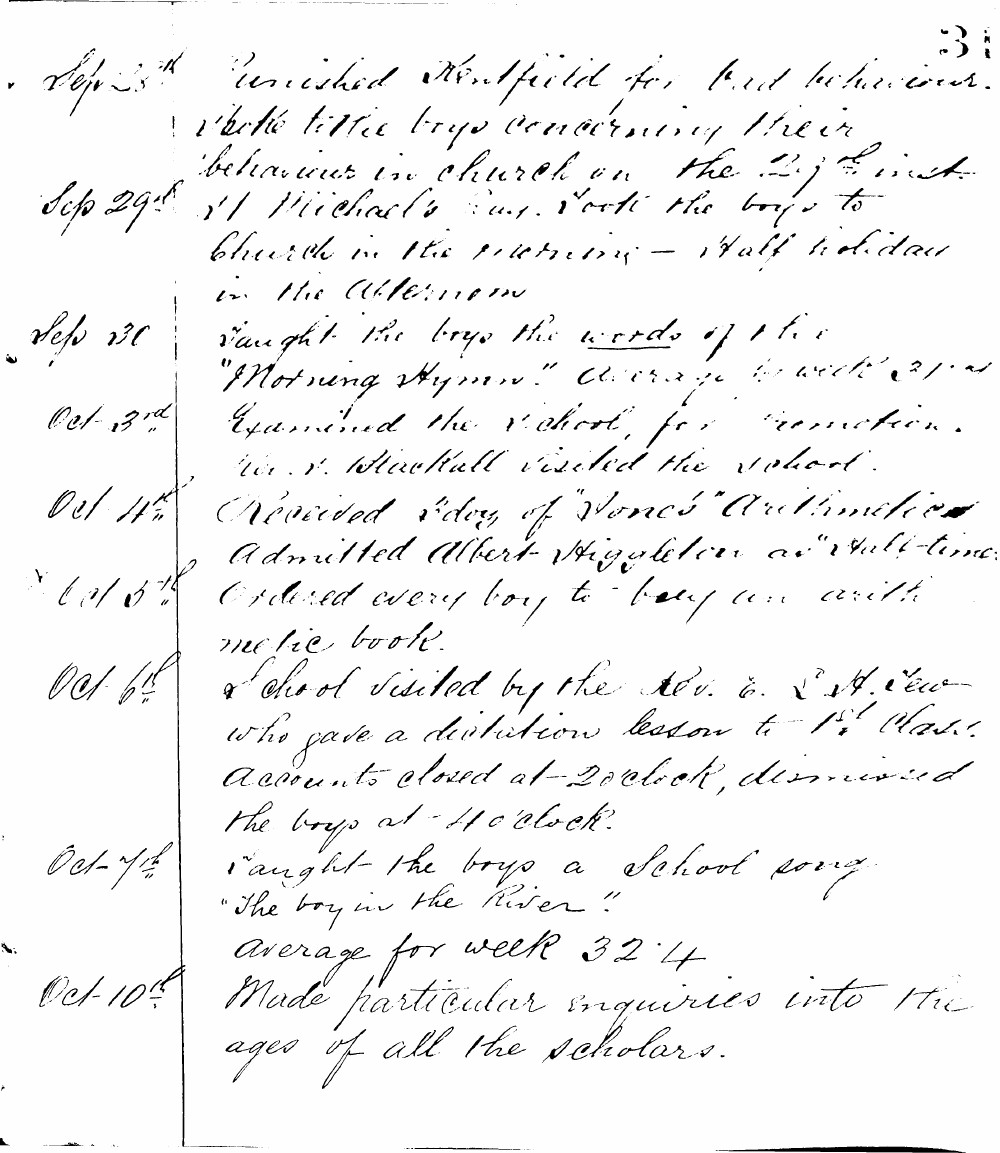 3
Sep 28th Punished Kentfield for bad behaviour.
Spoke to the boys concerning their
behaviour in church on the inst
Sep 29th St Michael's Day. Took the boys to
Church in the morning — Half holiday
in the Afternoon
Sep 30 Taught the boys the words of the
"Morning Hymn". Average week
Oct 3rd Examined the School, for Promotion.
Rev. Blackall visited the school.
Oct 4th Received doz of "Jones" Arithmetics
Admitted Albert Higgleton as "Half-time
Oct 5th Ordered every boy to buy an arith
metic book.
Oct 6th School visited by the Rev. E. H. Tew
who gave a dictation lesson to 1st Class.
Accounts closed at 2 o'clock, dismissed
the boys at 4 o'clock.
Oct 7th Taught the boys a School song
"The boy in the River".
Average for week 32.4
Oct 10th Made particular enquiries into the
ages of all the scholars.